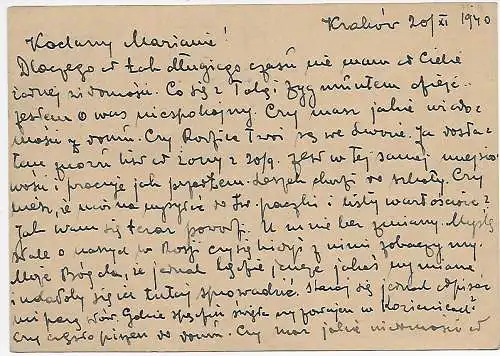 Kraków 20/XI 1940
Kochany Marianie!
Dlaczego od tak długiego czasu nie mam od Ciebie
żadnej wiadomości. Co się z Tobą i Zygmuntem dzieje.
Jestem o was niespokojny. Czy masz jakie wiado-
mości z domu. Czy Rodzice Twoi są we Lwowie. Ja dosta-
łem znowu list od żony z 20/9. Jest w tej samej miejsco-
wości i pracuje jak przedtem. Leszek chodzi do szkoły. Czy
wiesz, że można wysyłać do paczki i listy wartościowe?
Jak wam się teraz powodzi. U mnie bez zmiany. Myślę
stale o naszych w Rosji czy się kiedyś z nimi zobaczymy.
Może Bóg da, że jednak będzie jeszcze jakaś wymiana
i udałoby się ich tutaj sprowadzić. Staraj się jednak odpisać
mi parę słów. Gdzie spędzi święta w Kozienicach?
Czy często piszesz do domu. Czy masz jakie wiadomości od